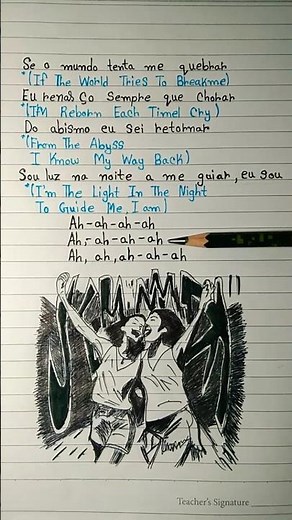 Se o mundo tenta me quebrar
*(If The World Tries To Breakme)
Eu renasço Sempre que Chorar
*(I'M Reborn Each Time I Cry)
Do abismo eu sei retornar
*(From The Abyss
I Know My Way Back)
Sou luz na noite a me guiar, eu sou
*(I'm The Light In The Night
To Guide Me, I am)
Ah-ah-ah-ah
Ah,-ah-ah-ah
Ah, ah, ah-ah-ah
Teacher's Signature